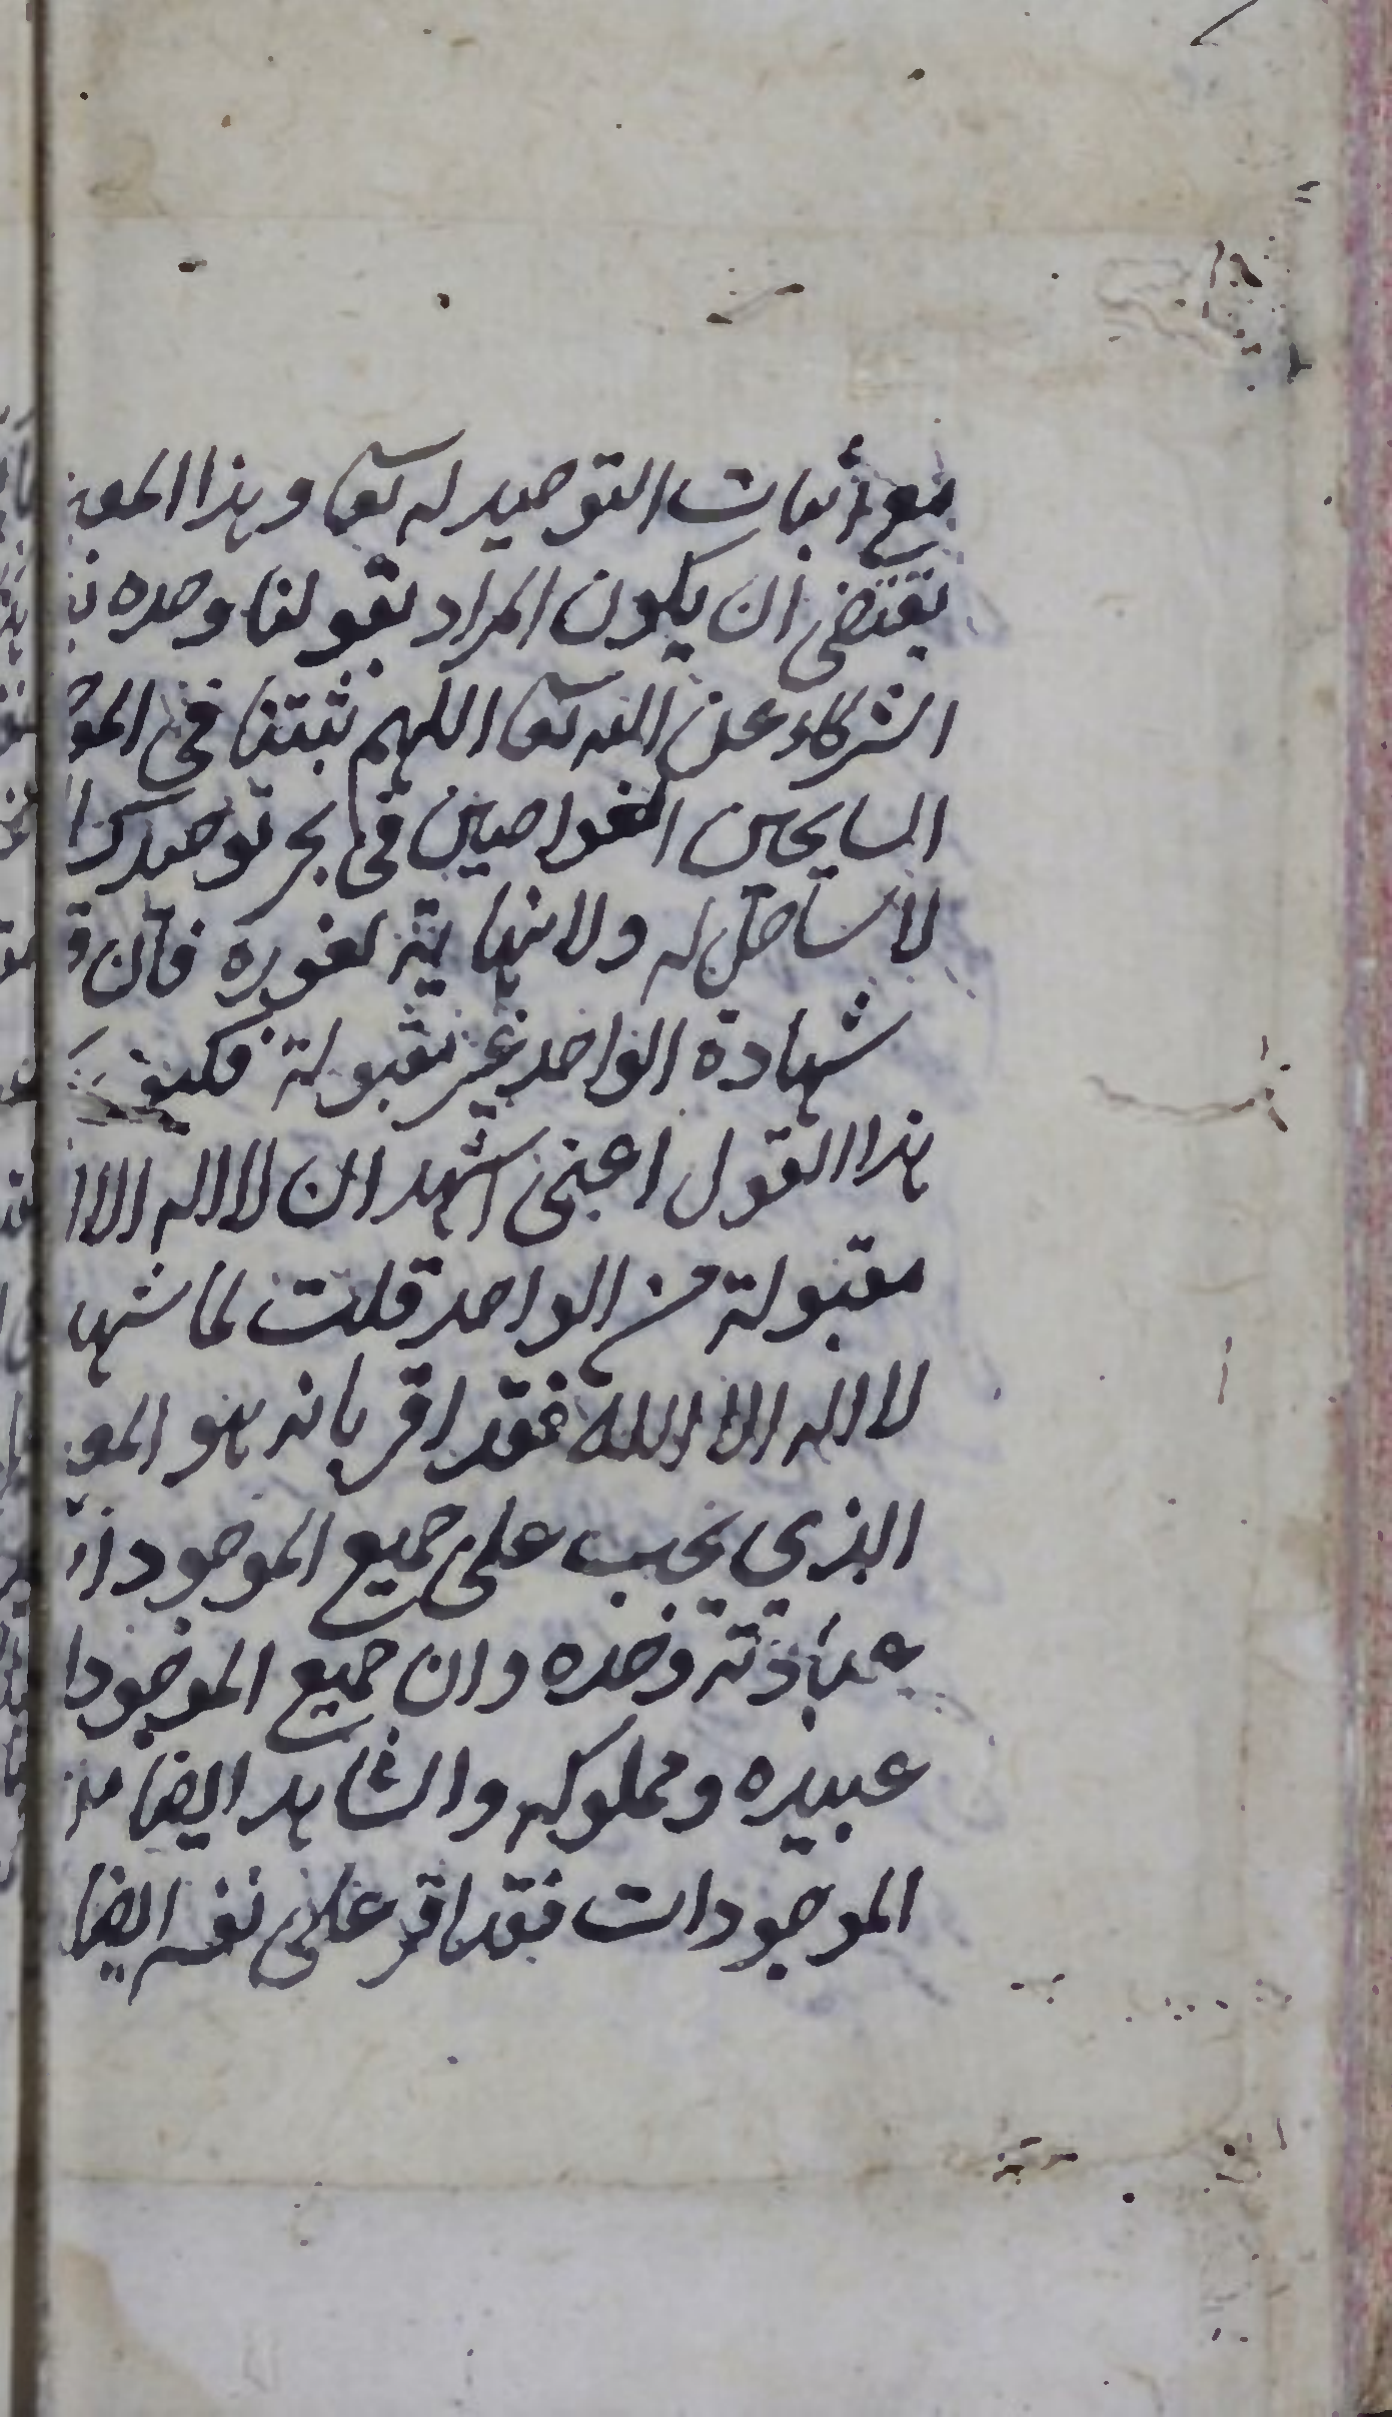 مع أثبات التوحيد له تعا وهذا المعن
يقتضى ان يكون المراد بقولنا وحده
الشركاء عن الله تعا اللهم ثبتنا فى
السابحين الغواصين فى بحر توحيدك
لا ساحل له ولا نهاية لغوره فان
شهادة الواحد غير مقبولة فكيف
هذا القول اعنى اشهد ان لا اله الا
مقبولة من الواحد قلت لما شها
لا اله الا الله فقد اقر بانه هو المع
الذي يجب على جميع الموجودات
عبادته وحده وان جميع الموجودا
عبيده ومملوكه والشاهد ايضا من
الموجودات فقد اقر على نفسه ايضا